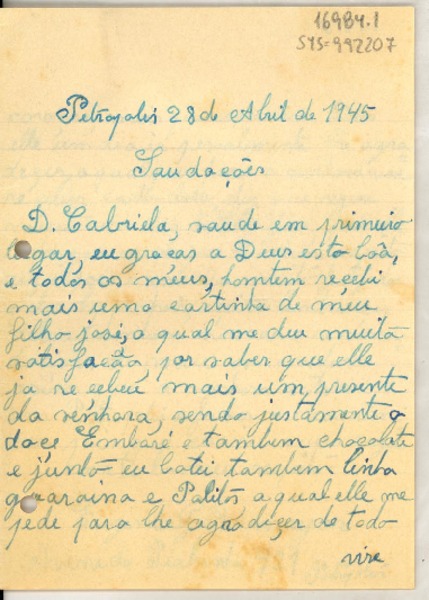 16984.1
SYS=992207
Petropolis 28 de Abril de 1945
Saudações
D. Gabriela, saude em primeiro
logar, eu graças a Deus esto bôa,
e todos os meus, homtem recebi
mais uma cartinha de meu
filho josé, a qual me deu muita
satisfação, por saber que elle
ja recebeu mais um presente
da senhora, sendo justamente o
doce Embaré e tambem chocolate
e junto eu botei tambem linha
e Palitos a qual elle me
pede para lhe agradiçer de todo
vire